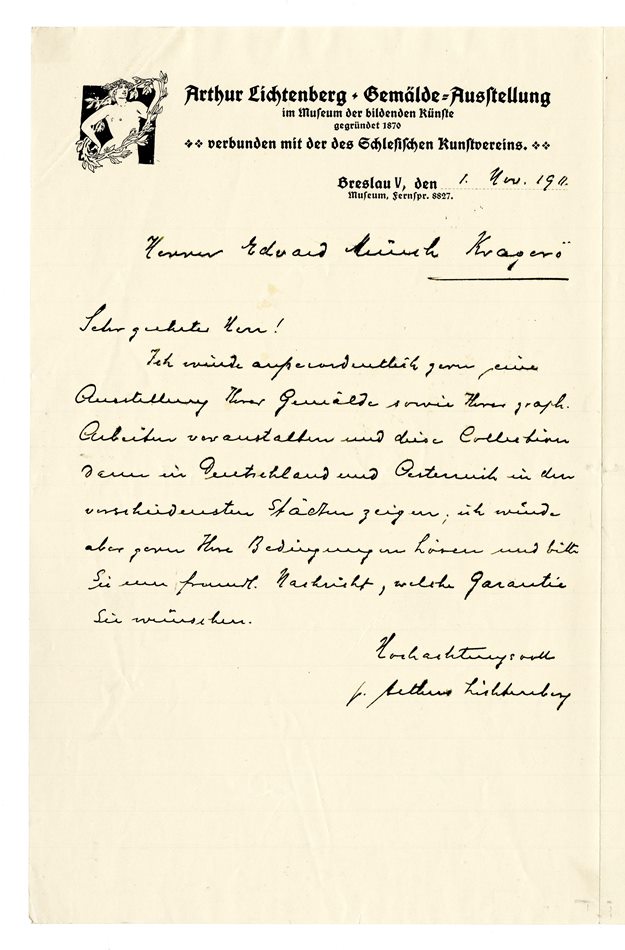 Arthur Lichtenberg · Gemälde-Ausstellung
im Museum der bildenden Künste
gegründet 1870
verbunden mit der des Schlesischen Kunstvereins.
Breslau V, den 1. Nov. 1911.
Museum, Fernspr. 8827.
Herren Edvard Münch Kragerö
Sehr geehrter Herr!
Ich würde außerordentlich gern eine
Ausstellung Ihrer Gemälde sowie Ihrer graph.
Arbeiten veranstalten und diese Collection
dann in Deutschland und Oesterreich in den
verschiedensten Städten zeigen; ich würde
aber gern Ihre Bedingungen hören und bitte
Sie um freundl. Nachricht, welche Garantie
Sie wünschen.
Hochachtungsvoll
p. Arthur Lichtenberg